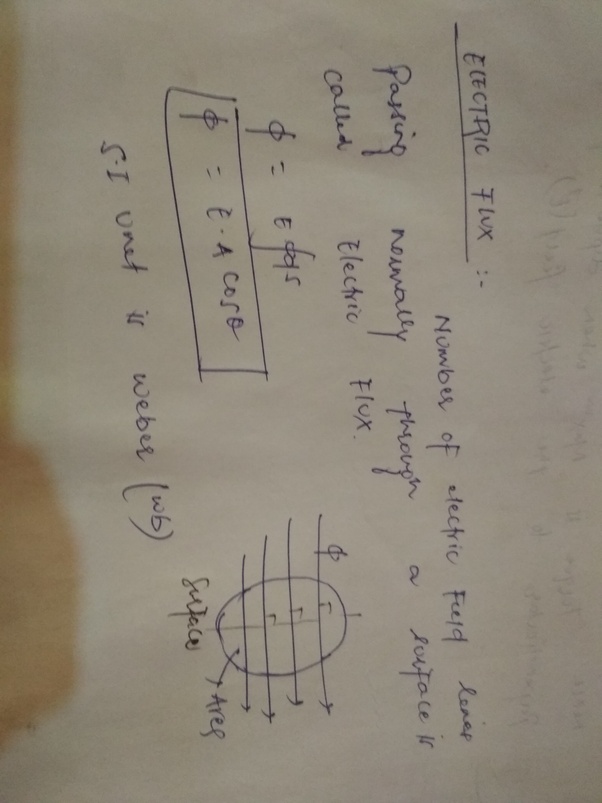 ELECTRIC FLUX :-
Number of electric Field lines
Passing normally through a surface is
called Electric Flux.
ϕ = E dqs
ϕ = E. A cosθ
S.I unit is weber (wb)
ϕ
Surface
Area